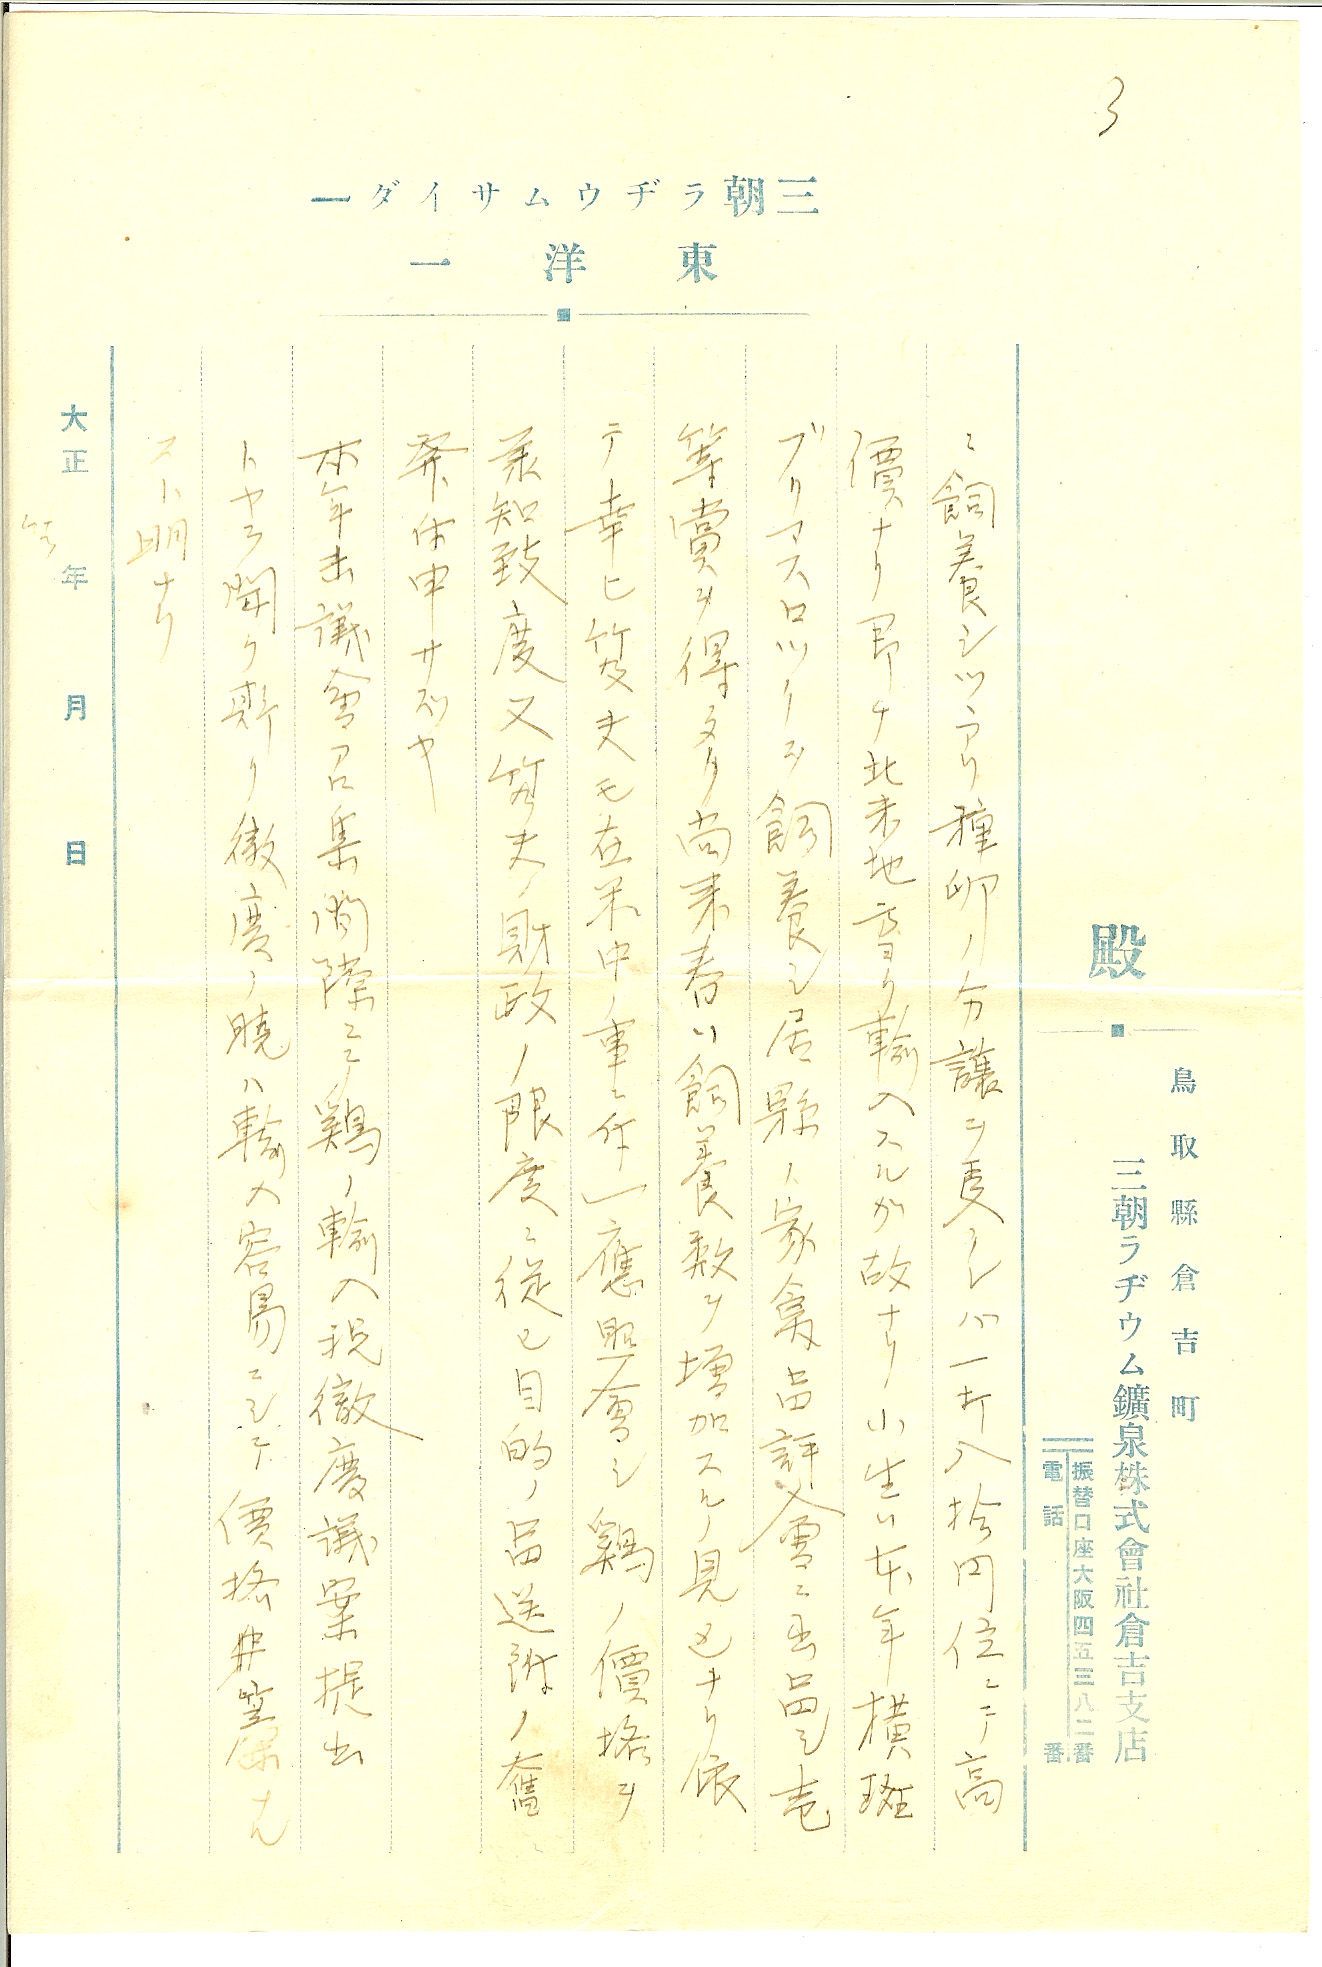 3
三朝ラヂウムサイダー
東洋一
鳥取縣倉吉町
三朝ラヂウム鑛泉株式會社倉吉支店
振替口座大阪四五三八二番
電話 番
殿
ニ飼養シツヽアリ種卵ノ分譲ヲ受クレバ一打入拾円位ニテ高
價ナリ即チ北米地方ヨリ輸入スルガ故ナリ小生ハ本年横斑
プリマスロツクヲ飼養シ居縣ノ家禽品評会ニ出品シ壱
等賞ヲ得タリ尚来春ハ飼養数ヲ増加スル見込ナリ依
テ幸ヒ モ在米中ノ事ニ付 應照會シ鶏ノ價格ヲ
承知致度又 ノ財政ノ限度ニ従ヒ目的ノ品送附ノ奮
發
本年末議會召集開院ニテ鶏ノ輸入税撤廃議案提出
トヤラ聞ク斯ク撤廃ノ曉ハ輸入容易ニシテ價格
スト明ナリ
大正 年 月 日